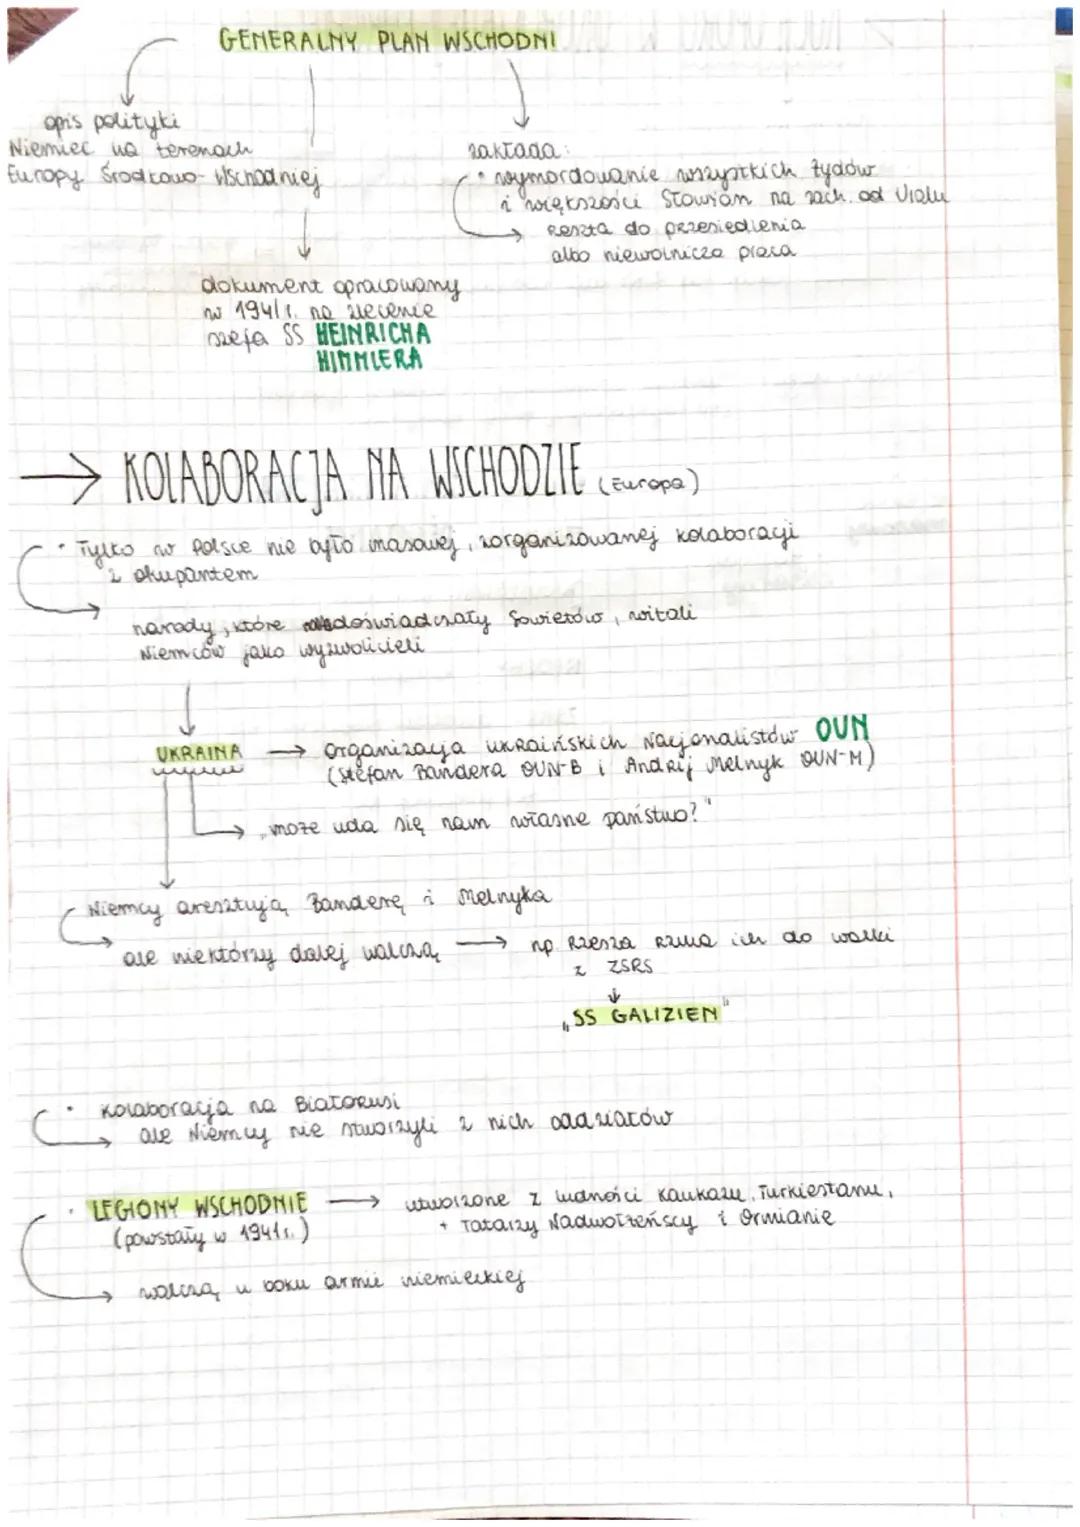 GENERALNY PLAN WSCHODNI
opis polityki
Niemiec na terenach
Europy Środkowo-Wschodniej
zakłada:
• wymordowanie wszystkich żydów
i większości Słowian na zach. od Uralu
→ reszta do przesiedlenia
albo niewolnicza praca
dokument opracowany
w 1941r. na zlecenie
szefa SS HEINRICHA
HIMMLERA
→ KOLABORACJA NA WSCHODZIE (Europa)
• Tylko w Polsce nie było masowej, zorganizowanej kolaboracji
z okupantem
→ narody, które doświadczały Sowietów, witali
Niemców jako wyzwolicieli
UKRAINA → Organizacja Ukraińskich Nacjonalistów OUN
(Stefan Bandera OUN-B i Andrij Melnyk OUN-M)
→ „może uda się nam własne państwo?"
Niemcy aresztują Banderę i Melnyka
→ ale niektórzy dalej walczą → np Rzesza rzuca ich do walki
z ZSRS
↓
„SS GALIZIEN"
• Kolaboracja na Białorusi
→ ale Niemcy nie stworzyli z nich oddziałów
• LEGIONY WSCHODNIE → utworzone z ludności Kaukazu, Turkiestanu,
(powstały w 1941r.) + Tatarzy Nadwołżeńscy i Ormianie
→ walczą u boku armii niemieckiej